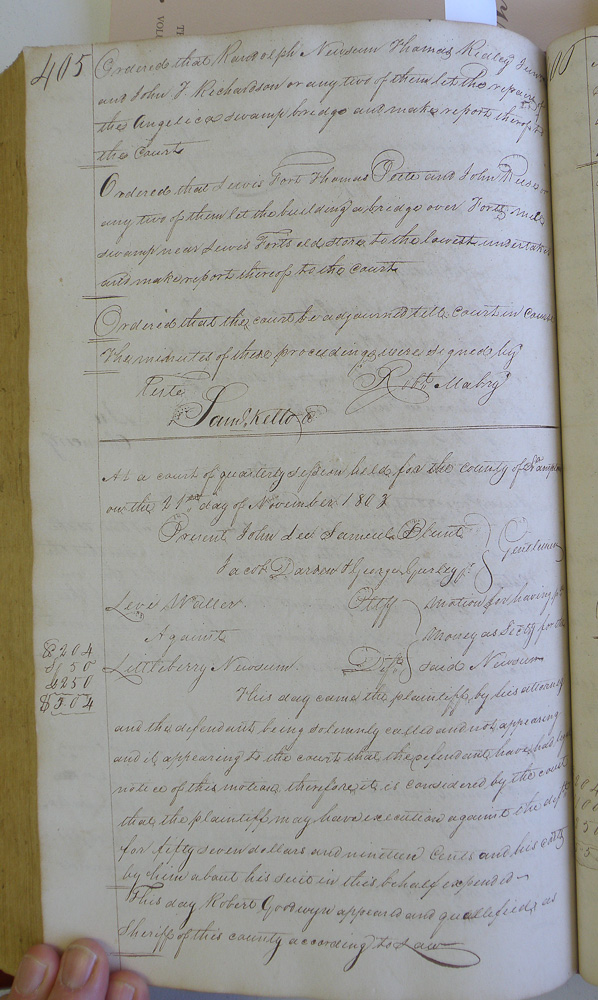 405
Ordered that Randolph Newsum Thomas Ridley
and John T Richardson or any two of them let the repairs of
the Angelica swamp bridge and make report thereof to
the Court
Ordered that Lewis Fort Thomas Pete and John Reese or
any two of them let the building a bridge over Forts mill
swamp near Lewis Forts old store to the lowest undertaker
and make report thereof to the court
Ordered that the court be adjourned till court in course
The minutes of these proceedings were signed by
Teste Robt. Mabry
Saml. Kello
At a court of quarterly session held for the county of
on the 21st day of November 1803
Present John Lee Samuel Blunt
Jacob Darden & George Gurley
Gentlemen
Levi Waller Pltff Motion for having pd.
Against money as Security for the
Littleberry Newsum Deft said Newsum
$204
150
250
$504
This day came the plaintiff by his attorney
and the defendant being solemnly called and not appearing
and it appearing to the court that the defendant have had
notice of this motion, therefore it is considered by the court
that the plaintiff may have execution against the deft.
for fifty seven dollars and nineteen Cents and his costs
by him about his suit in this behalf expended
This day Robert Goodwyn appeared and quallified as
Sheriff of this county according to Law